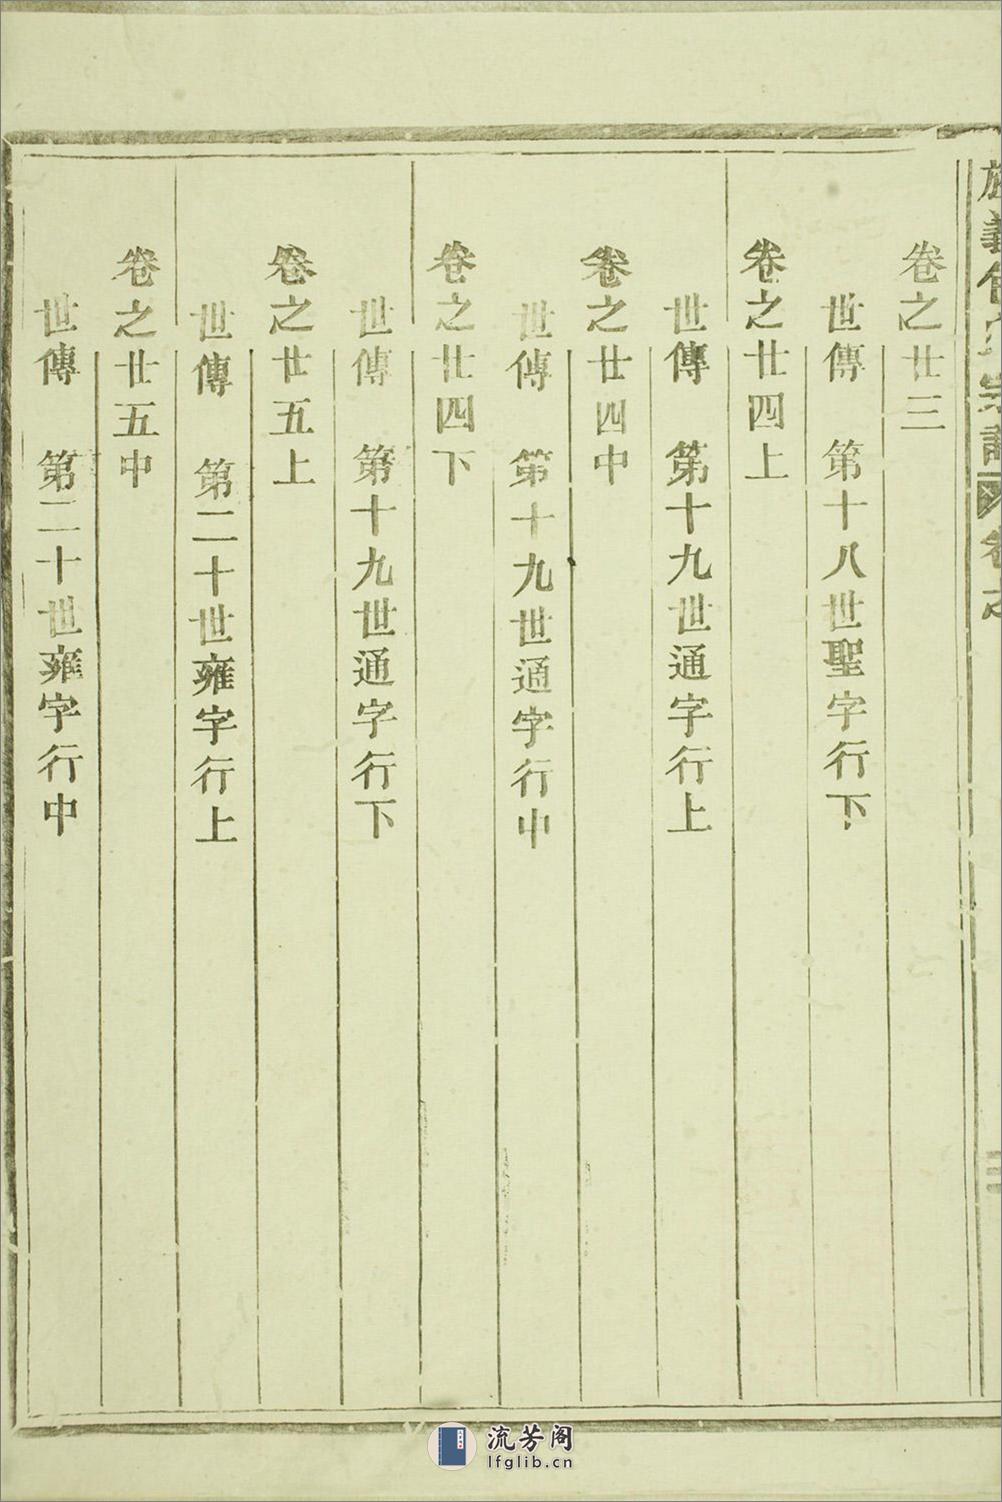 卷之廿三
世傳 第十八世聖字行下
卷之廿四上
世傳 第十九世通字行上
卷之廿四中
世傳 第十九世通字行中
卷之廿四下
世傳 第十九世通字行下
卷之廿五上
世傳 第二十世雍字行上
卷之廿五中
世傳 第二十世雍字行中
流芳阁
lfglib.cn